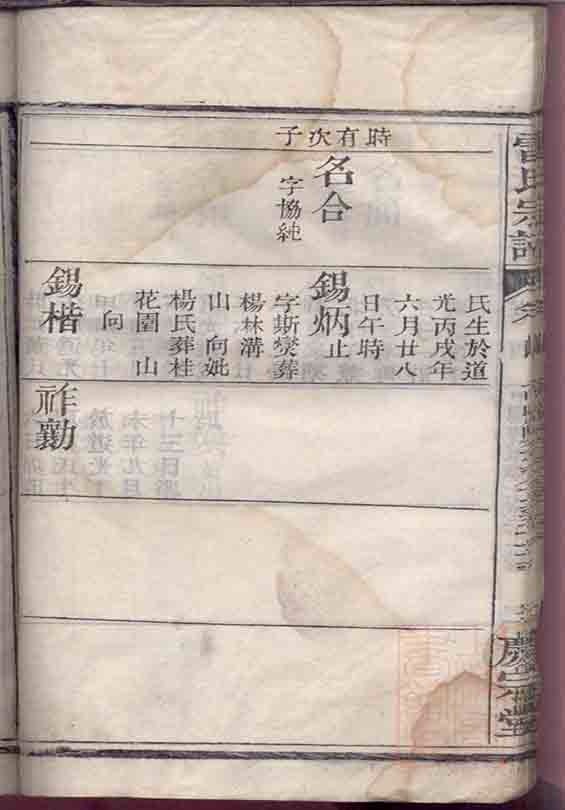 氏宗譜
時有次子
名合
字協純
氏生於道
光丙戌年
六月廿八
日午時
錫炳止
字斯燮葬
楊林溝
山 向妣
楊氏葬桂
花園 山
向
錫楷
祚勷